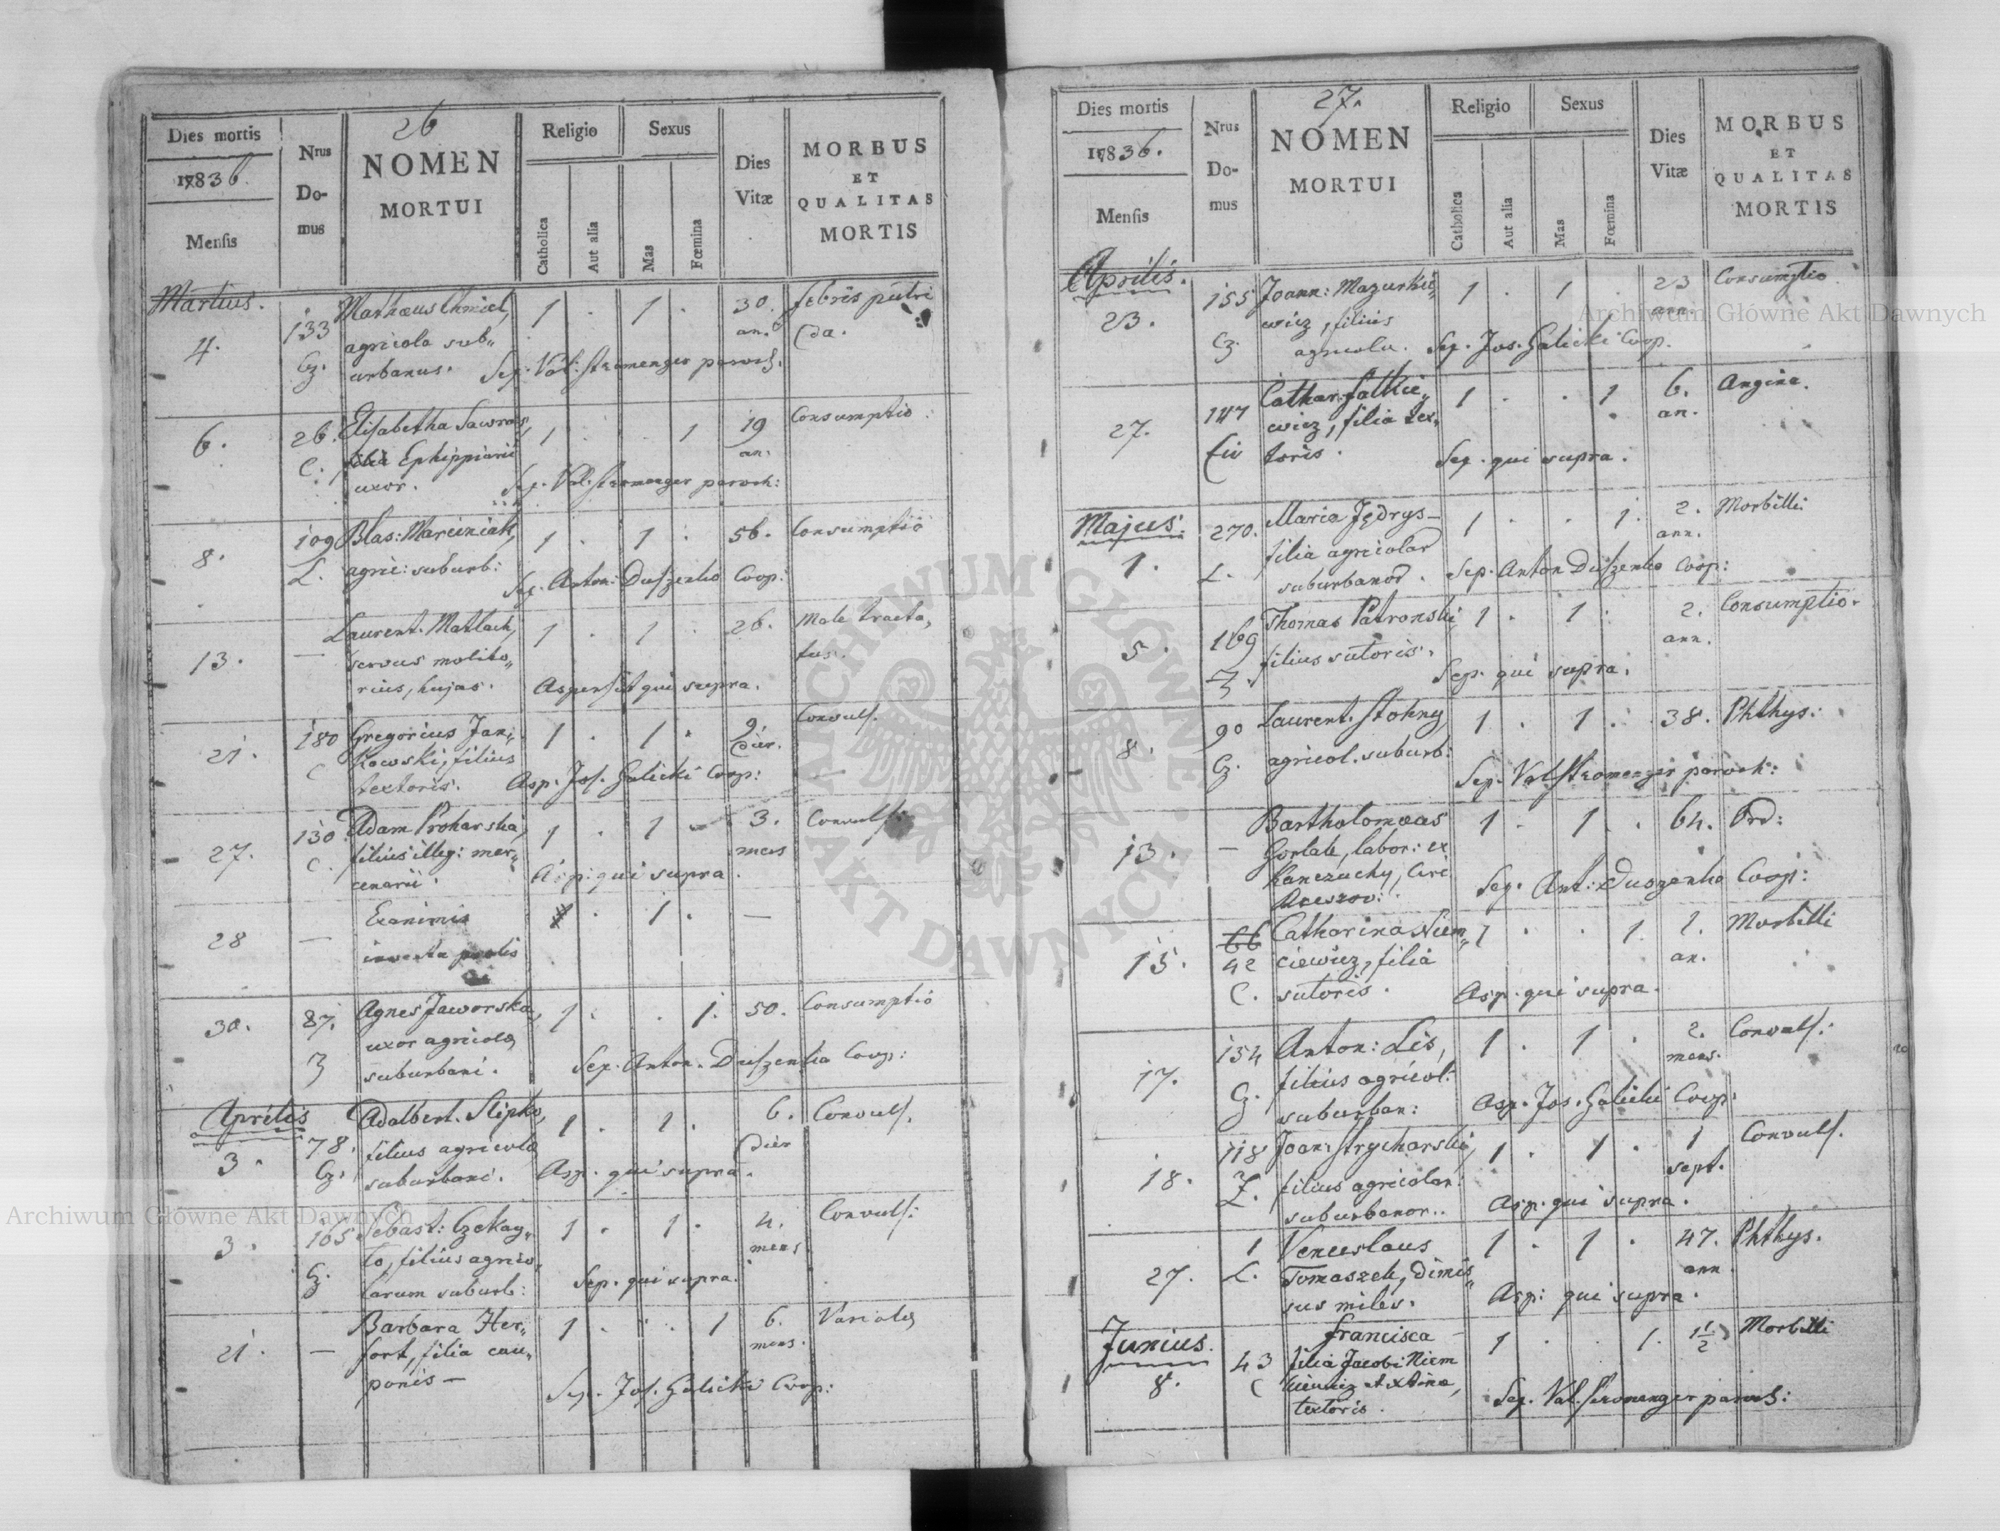 26
Dies mortis
1836.
Mensis
Nrus
Do-
mus
NOMEN
MORTUI
Religio
Catholica
Aut alia
Sexus
Mas
Fœmina
Dies
Vitæ
MORBUS
ET
QUALITAS
MORTIS
Martius.
4.
133
Cz.
Mathæus Chmiel,
agricola sub„
urbanus.
1 . 1 .
30.
an.
febris putri
da.
Sep. Val: Stromenger paroch.
6.
26.
C.
Elisabetha Sawras,
filia Ephippiarii
uxor.
1 . . 1
19
an.
Consumptio.
Sep. Val. Stromenger paroch:
8.
109
L.
Blas: Marciniak,
agric: suburb:
1 . 1 .
56.
Consumptio
Sep. Anton: Duszenko Coop:
13.
—
Laurent. Matlach,
servus molito„
rius, hujas.
1 . 1 .
26.
Male tracta„
tus.
Aspersit qui supra.
21.
180
C
Gregorius Jani„
kowski, filius
textoris.
1 . 1 .
9.
dier.
Convuls.
Asp. Jos. Galicki Coop:
27.
130
C.
Adam Proharska,
filius illeg: mer„
cenarii.
1 . 1 -
3.
mens
Convuls:
Asp: qui supra.
28
—
Exanimis
inventa prolis
. 1 .
—
30.
87.
Z
Agnes Jaworska,
uxor agricolæ
suburbani.
1 . . 1.
50.
Consumptio
Sep. Anton. Duszenko Coop:
Aprilis
3.
78.
Cz.
Adalbert. Slipko,
filius agricolæ
suburbani.
1 . 1 .
6.
dier
Convuls.
Asp. qui supra.
3.
165
Cz.
Sebast: Czekay„
lo, filius agrico„
larum suburb:
1 . 1 .
4.
mens
Convuls:
Sep. qui supra.
21.
—
Barbara Her„
fort, filia cau„
ponis —
1 . . 1
6.
mens.
Variolæ
Sep. Jos. Galicki Coop:
27.
Dies mortis
1836.
Mensis
Nrus
Do-
mus
NOMEN
MORTUI
Religio
Catholica
Aut alia
Sexus
Mas
Fœmina
Dies
Vitæ
MORBUS
ET
QUALITAS
MORTIS
Aprilis.
23.
155
Cz.
Joann: Mazurkie„
wicz, filius
agricolæ.
1 . 1 .
23
ann.
Consumptio.
Sep. Jos. Galicki Coop.
27.
147
Civ
Cathar. Fatkie„
wicz, filia tex„
toris.
1 . . 1
6.
an.
Angina.
Sep. qui supra.
Majus.
1.
270.
L.
Maria Jędrys—
filia agricolar
suburbanor.
1 . . 1.
2.
ann.
Morbilli
Sep. Anton Duszenko Coop:
5.
169
Z.
Thomas Patronski,
filius sutoris.
1 . 1 .
2.
ann.
Consumptio.
Sep. qui supra.
8.
90
Cz.
Laurent. Stohny
agricol. suburb:
1 . 1 .
38.
Phthys:
Sep. Val Stromenger paroch:
13.
—
Bartholomæus
Gorlak, labor: ex
Kanczuchy, Circ
Rzeszov:
1 . 1 .
64.
Ord:
Sep. Ant: Duszenko Coop:
15.
66
42
C.
Catharina Niem„
ciewicz, filia
sutoris.
1 . . 1.
1.
an.
Morbilli
Asp. qui supra.
17.
154
Cz.
Anton: Lis,
filius agricol:
suburban:
1 . 1 .
2.
mens.
Convuls.:
Asp. Jos. Galicki Coop:
18.
118
Z.
Joan: Strycharski,
filius agricolar:
suburbanor..
1 . 1 .
1
sept.
Convuls.
Asp. qui supra.
27.
1
L.
Venceslaus
Tomaszek, Dimis„
sus miles.
1 . 1 .
47.
ann
Phthys.
Asp: qui supra.
Junius.
8.
43
C
Francisca —
filia Jacobi Niem
textoris.
1 . . 1.
1 1/2
Morbilli
Sep. Val. Stromenger paroch:
Archiwum Główne Akt Dawnych
Archiwum Główne Akt Dawnych
ARCHIWUM GŁÓWNE AKT DAWNYCH